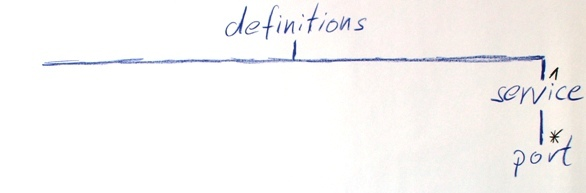 definitions
1
service
*
port